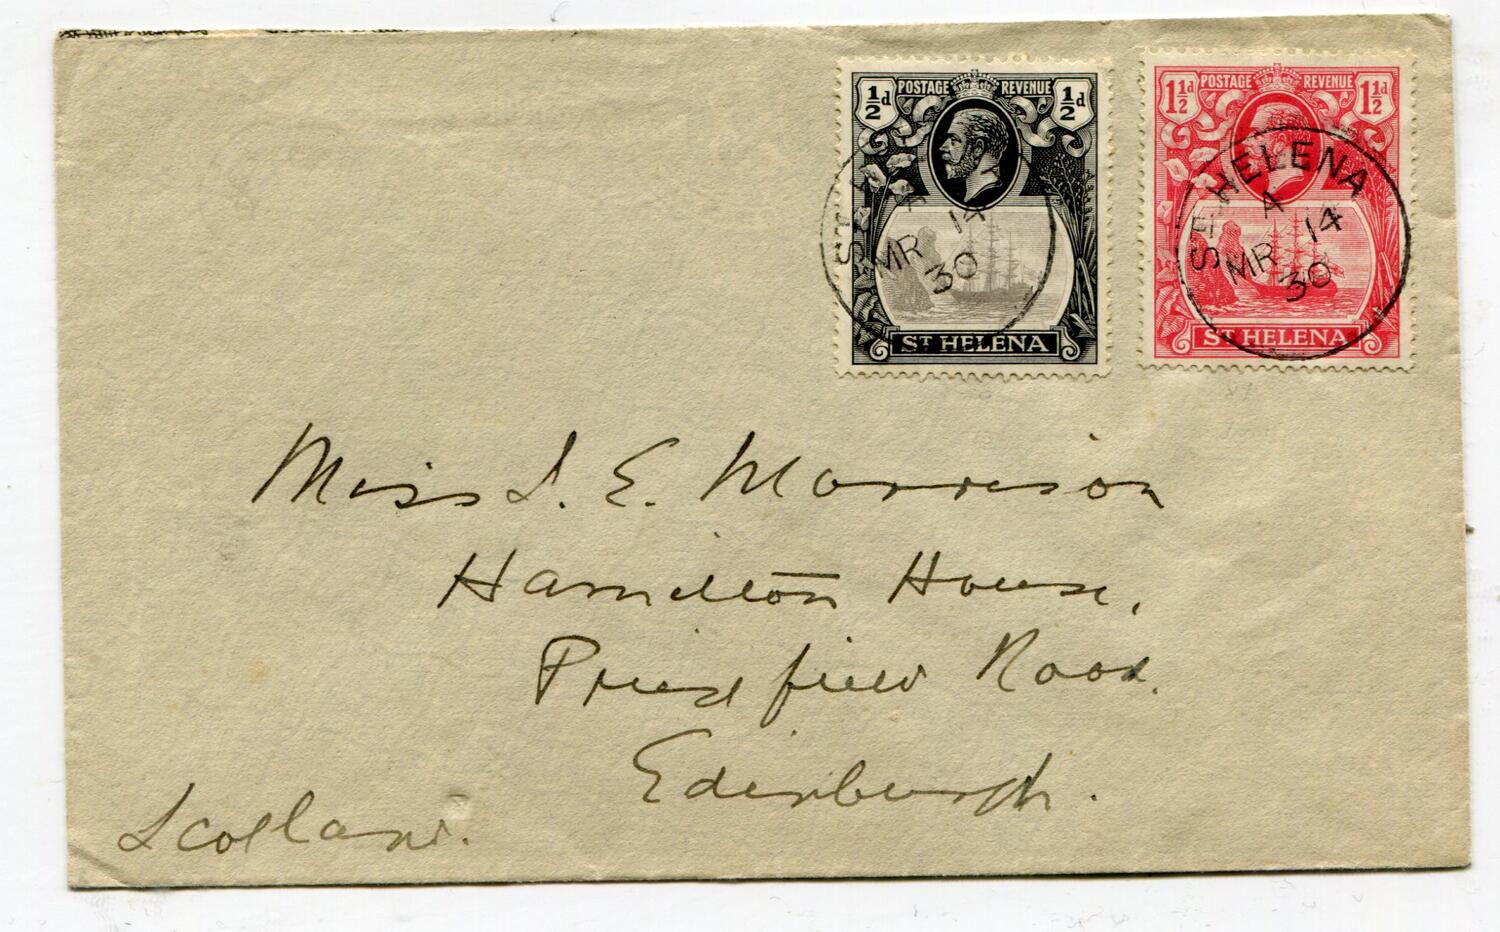 ½d POSTAGE REVENUE ½d
ST HELENA
ST HELENA
A
MR 14
30
1½d POSTAGE REVENUE 1½d
ST HELENA
ST HELENA
A
MR 14
30
Miss I. E. Morrison
Hamilton House,
Priestfield Road.
Edinburgh.
Scotland.